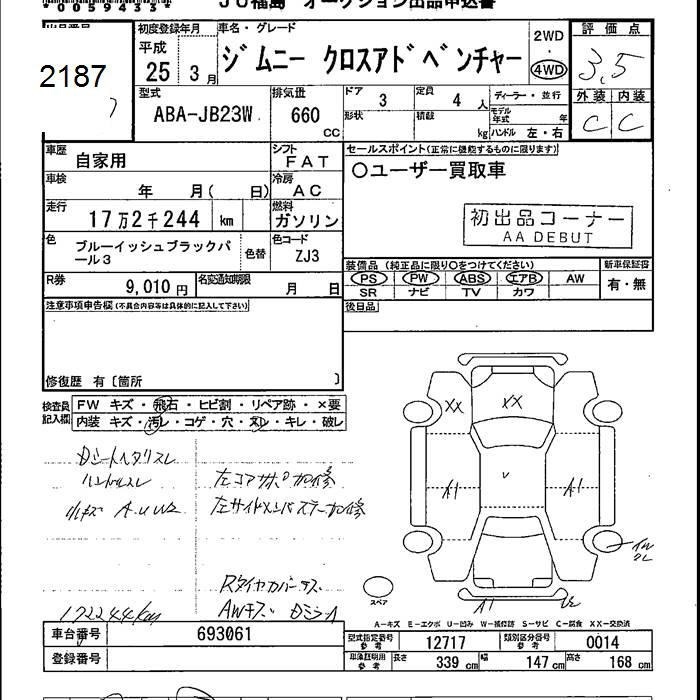 0059433
JU福島 オークション出品申込書
2187
初度登録年月 車名・グレード
平成 25 3月 ジムニー クロスアドベンチャー
2WD
4WD
評価点
3.5
外装 内装
C C
型式 ABA-JB23W
排気量 660 CC
ドア 3 定員 4 人
形状 積載 kg
ディーラー・並行
モデル年式 年
ハンドル 左・右
車歴 自家用
シフト FAT
車検 年 月( 日)
冷房 AC
走行 17万2千244 km
燃料 ガソリン
色 ブルーイッシュブラックパール3
色替
色コード ZJ3
R券 9,010円
名変通知期限 月 日
セールスポイント(正常に機能するものに限ります)
○ユーザー買取車
初出品コーナー
AA DEBUT
装備品 (純正品に限り○をつけてください)
PS PW ABS エアB AW
SR ナビ TV カワ
新車保証書
有・無
後日品
注意事項申告欄(不具合内容等は具体的に記入して下さい)
修復歴 有〔箇所 〕
検査員記入欄
FW キズ・飛石・ヒビ割・リペア跡・×要
内装 キズ・汚レ・コゲ・穴・スレ・キレ・破レ
Dシートヘタリスレ
ハンドルスレ
小キズ A.U W2
左コアサポ加修
左サイドメンバステー加修
Rタイヤカバーキズ
AWキズ DミラーA
172244km
XX
XX
A1
v
A1
A1
スペア
A−キズ E−エクボ U−凹み W−補修跡 S−サビ C−腐食 XX−交換済
車台番号 693061
登録番号
型式指定番号 参考 12717
類別区分番号 参考 0014
車庫証明用 参考 長さ 339 cm 幅 147 cm 高さ 168 cm